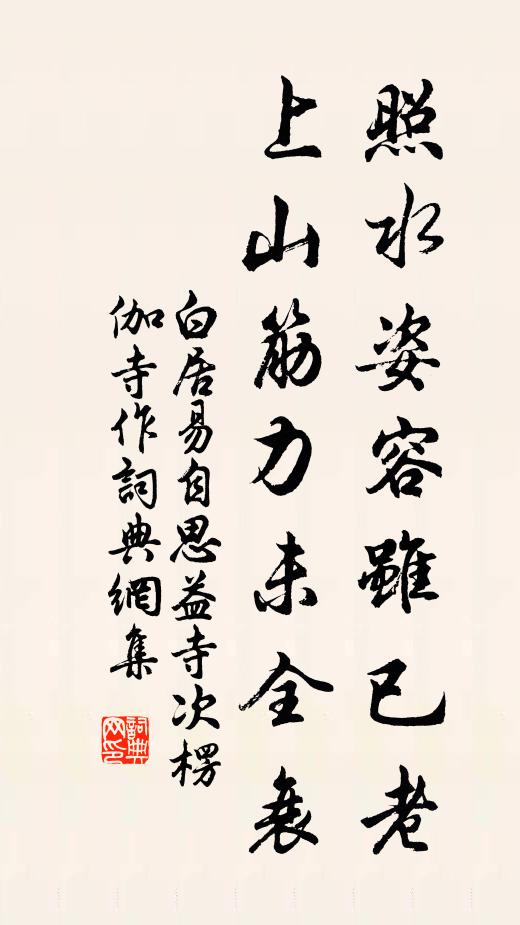 照水姿容雖已老
上山筋力未全衰
白居易自思益寺次楞
伽寺作詞典網集
詞典
网印